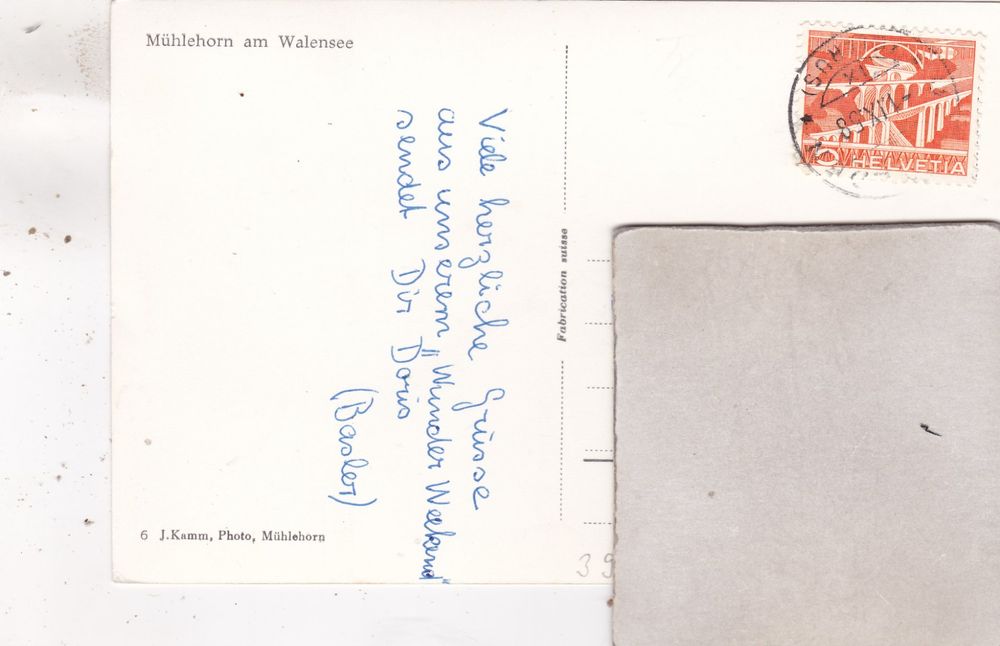 Mühlehorn am Walensee
Viele herzliche Grüsse
aus unserem „Wunder Weekend"
sendet Dir Doris
(Basler)
6 J.Kamm, Photo, Mühlehorn
Fabrication suisse
HELVETIA
39